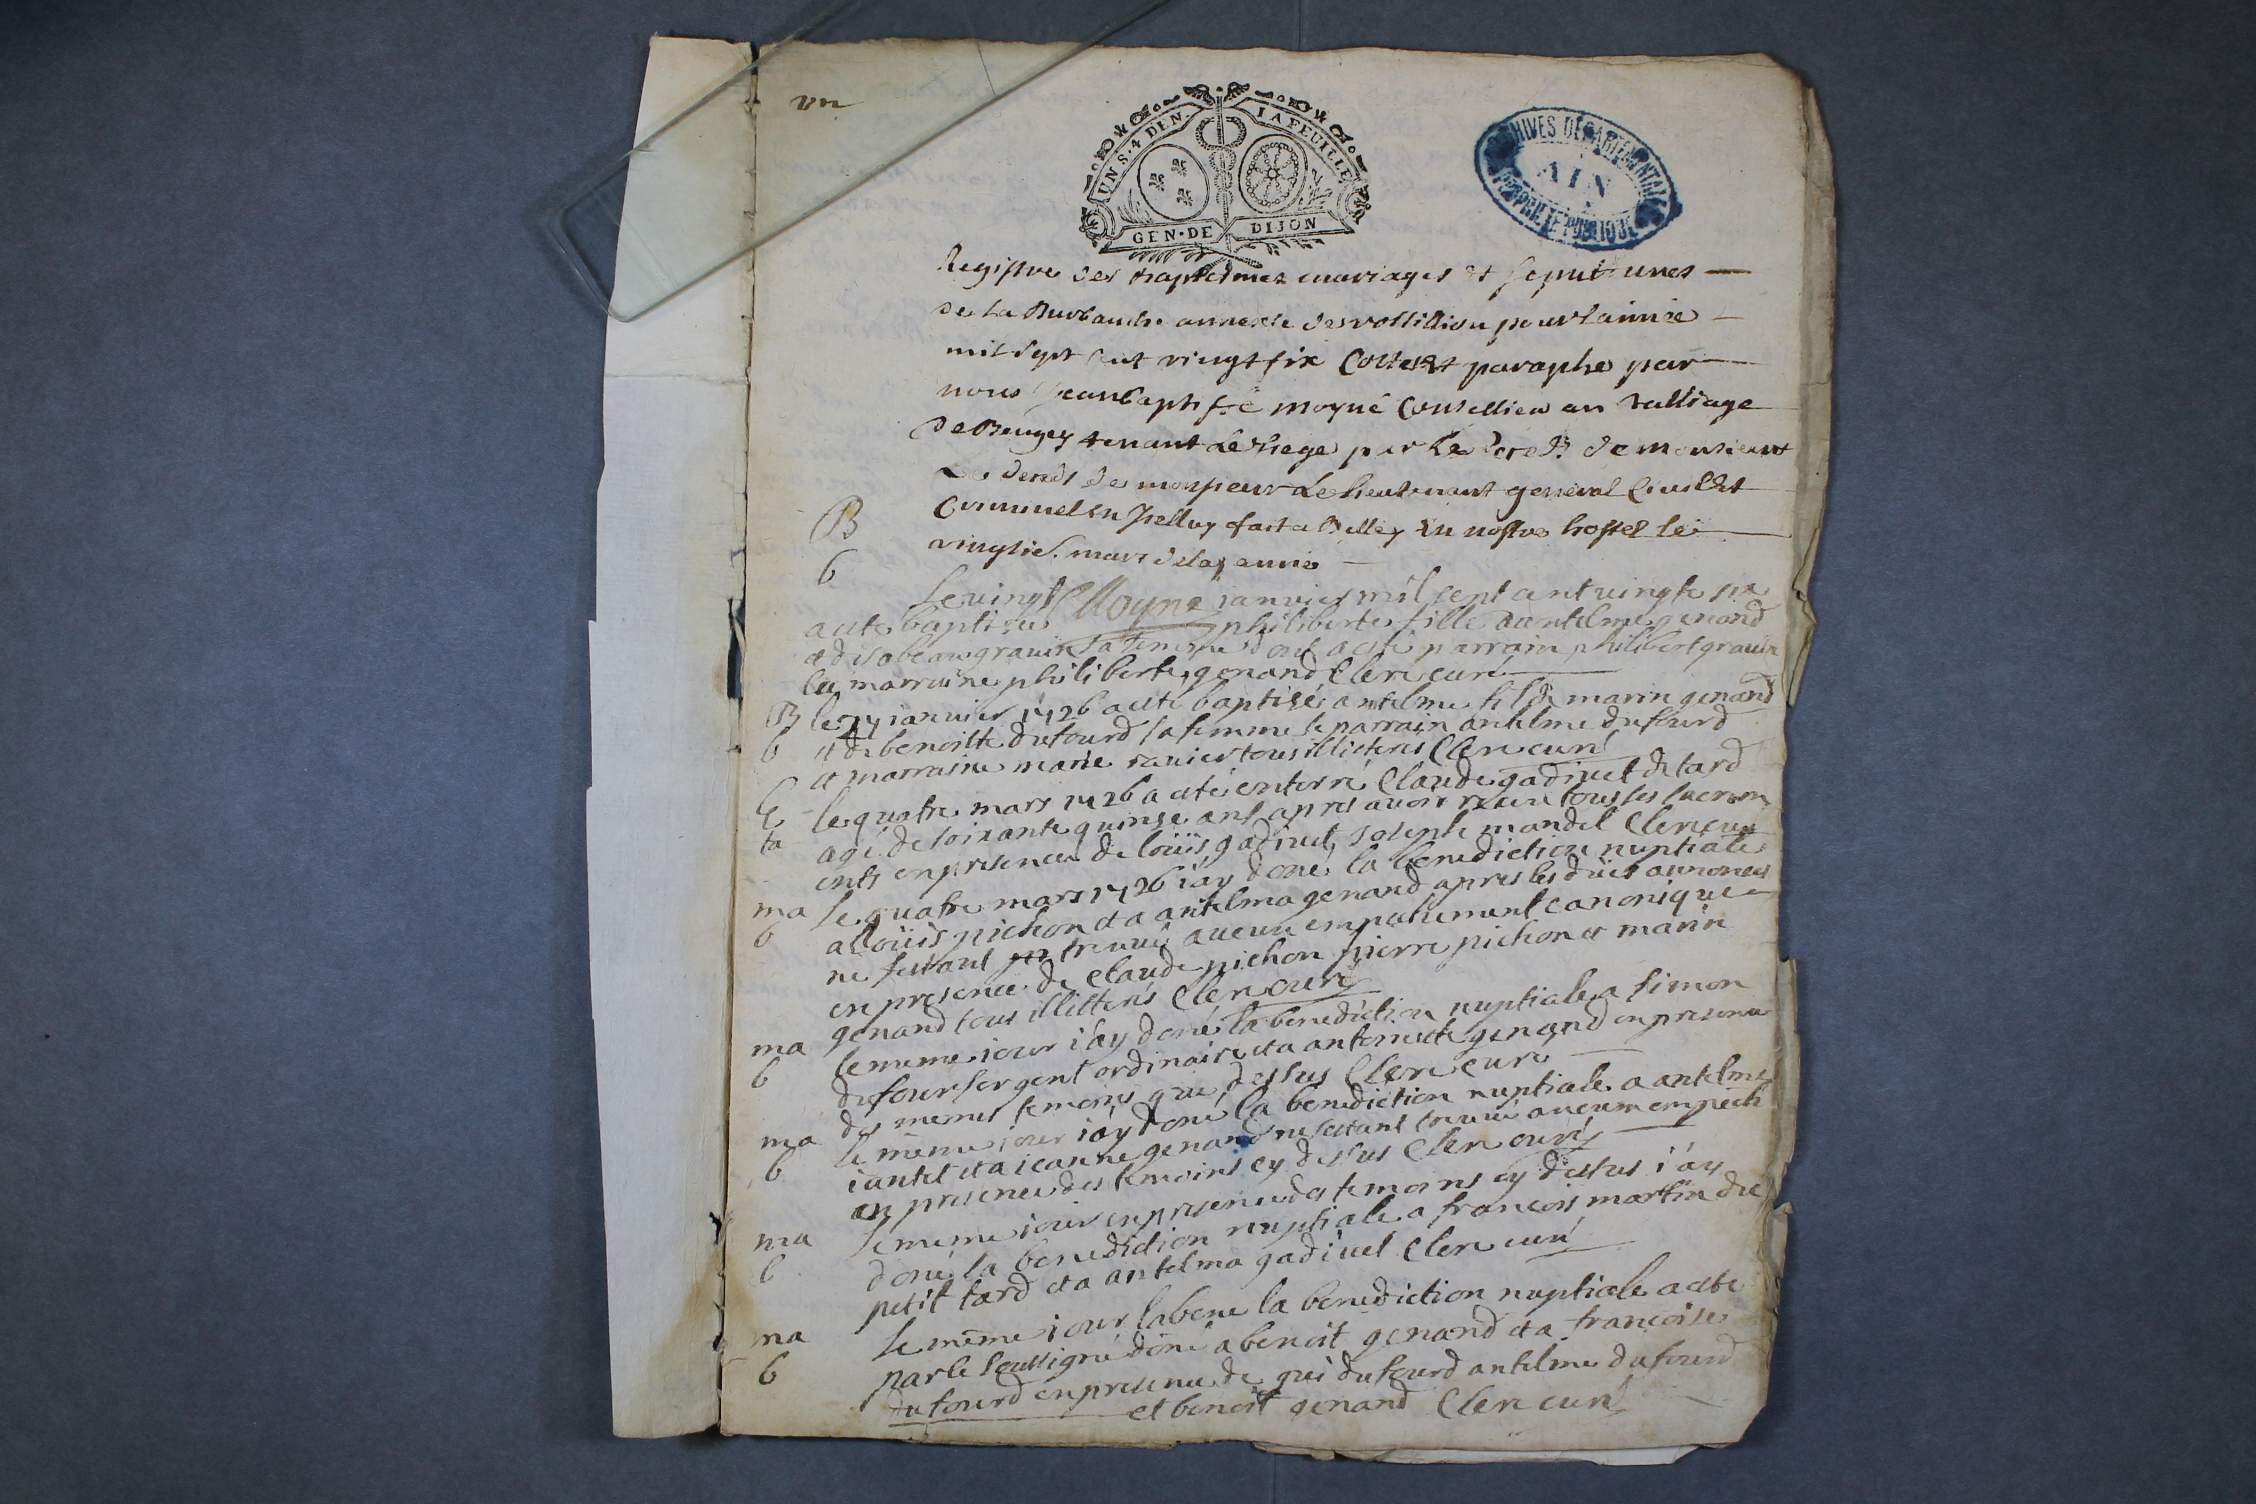 un
UN S. 4 DEN. LA FEUILLE
GEN. DE DIJON
ARCHIVES DÉPARTEMENTALES
AIN
PROPRIÉTÉ PUBLIQUE
Registre des baptesmes mariages et sepultures
de La Burbanche annexe de rossillion pour lannée
mil sept cent vingt six Cotte et paraphe par
nous Jean baptiste moyne Conseillier au balliage
de Beugey tenant le siege par le decedz de monsieur
Le decedz de monsieur Le lieutenant general Civil et
Criminel en Icelluy fait a Belley en nostre hostel le
B
vingtie. mars de la. année
b
Le vingt Moyne ianvier mil sept cent vingte six
a eté baptisée philiberte fille d'antelme genand
et d'isabeau gravin sa femme dont a esté parrain philibert gravin
la marraine philiberte genand Clerc curé
B le 24 ianvier 1726 a eté baptisé antelme fils de marin genand
b et de benoitte dufourd sa femme le parrain antelme dufourd
et marraine marie ravier tous illiterés Clerc curé
E le quatre mars 1726 a eté enterré Claude gadivet de tard
ta agé de soixante quinse ans apres avoir receu tous les sacrem
ents en presence de loüis gadivet, Joseph mandel Clerc curé
ma le quatre mars 1726 i'ay doné la benediction nuptiale
b a loüis pichon et a antelma genand apres les düës annonces
ne sestant trouvé aucun empechement canonique
en presence de claude pichon pierre pichon et marin
genand tous illitterés Clerc curé
ma le meme iour i'ay doné la benediction nuptiale a simon
b dufour sergent ordinaire et a antoinette genand en presence
des memes temoins que dessus Clerc curé
ma le même iour i'ay doné la benediction nuptiale a antelme
b iantet et a ieanne genand ne sestant trouvé aucun empech
en presence des temoins cy dessus Clerc curé
ma le meme iour en presence des temoins cy dessus i'ay
b doné la benediction nuptiale a francois martin du
petit tard et a antelma gadivet Clerc curé
ma le même iour la bene la benediction nuptiale a eté
b par le soussigné doné a benoit genand et a francoise
dufourd en presence de gui dufourd antelme dufourd
et benoit genand Clerc curé